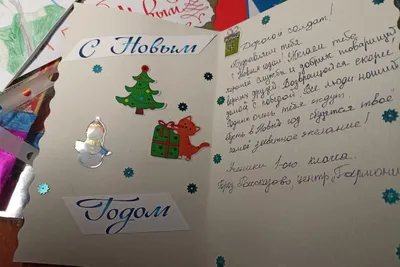 С Новым
Годом
Дорогой солдат!
Поздравляем тебя
с Новым годом! Желаем тебе
хорошей службы и добрых товарищей
верных друзей. Возвращайся скорее
домой с победой. Все люди нашей
Родины очень тебя ждут.
Пусть в Новый год сбудется твоё
самое заветное желание!
Ученики 1-ого класса.
Город Рассказово Центр "Гармония